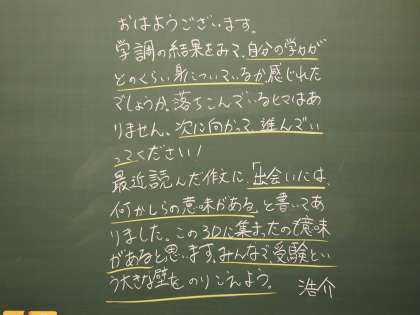 おはようございます。
学調の結果をみて、自分の学力が
どのくらい身についているか感じれた
でしょうか。落ちこんでいるヒマはあ
りません。次に向かって進んでい
ってください！
最近読んだ作文に、「出会いには、
何かしらの意味がある」と書いてあ
りました。この3Dに集まったのも意味
があると思います。みんなで、受験とい
う大きな壁をのりこえよう。 浩介